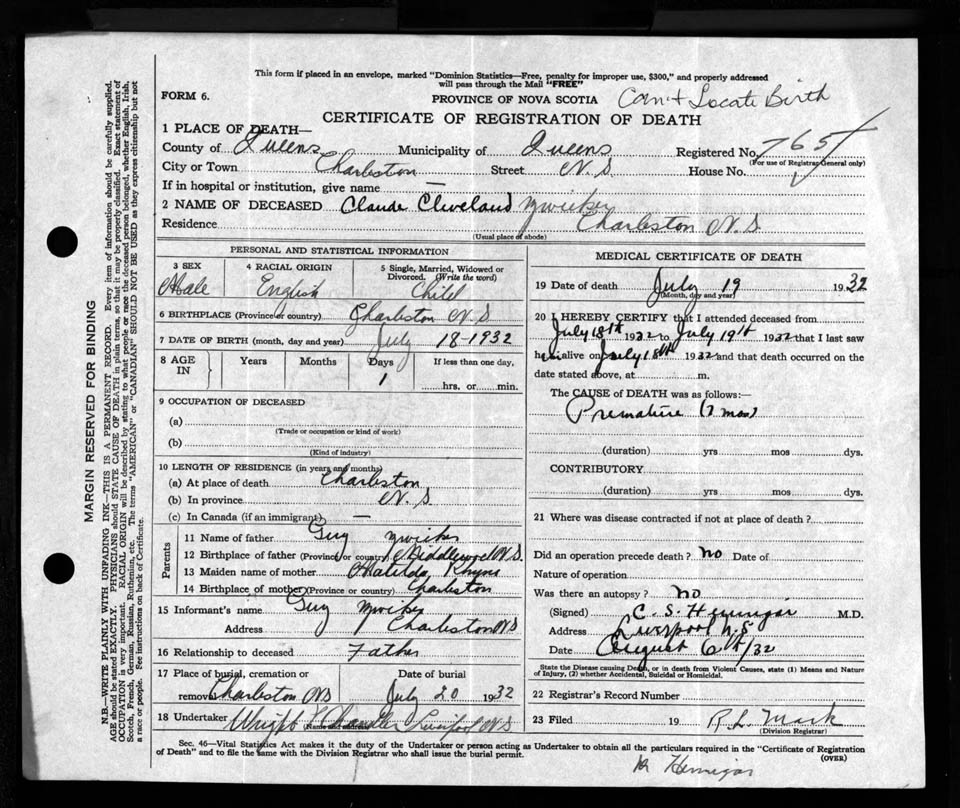 This form if placed in an envelope, marked "Dominion Statistics—Free, penalty for improper use, $300," and properly addressed
will pass through the Mail "FREE"
FORM 6.
PROVINCE OF NOVA SCOTIA Can't Locate Birth
CERTIFICATE OF REGISTRATION OF DEATH
1 PLACE OF DEATH—
County of Queens Municipality of Queens Registered No. 765
(For use of Registrar General only)
City or Town Charleston Street N.S House No.
If in hospital or institution, give name —
2 NAME OF DECEASED Claude Cleveland Zwicker
Residence Charleston N.S.
(Usual place of abode)
PERSONAL AND STATISTICAL INFORMATION
3 SEX Male
4 RACIAL ORIGIN English
5 Single, Married, Widowed or Divorced. (Write the word) Child
6 BIRTHPLACE (Province or country) Charleston N.S
7 DATE OF BIRTH (month, day and year) July 18-1932
8 AGE IN Years Months Days 1 If less than one day,
hrs. or min.
9 OCCUPATION OF DECEASED
(a)
(Trade or occupation or kind of work)
(b)
(Kind of industry)
10 LENGTH OF RESIDENCE (in years and months)
(a) At place of death Charleston
(b) In province N.S
(c) In Canada (if an immigrant) —
Parents
11 Name of father Guy Zwicker
12 Birthplace of father (Province or country) Middlewood N.S.
13 Maiden name of mother Matilda Rhyno
14 Birthplace of mother (Province or country) Charleston
15 Informant's name Guy Zwicker
Address Charleston NS
16 Relationship to deceased Father
17 Place of burial, cremation or removal Charleston NS
Date of burial July 20 1932
18 Undertaker Wright Chandler Liverpool N.S
(Name and address)
MEDICAL CERTIFICATE OF DEATH
19 Date of death July 19 1932
(Month, day and year)
20 I HEREBY CERTIFY that I attended deceased from
July 18th 1932 to July 19th 1932 that I last saw
him alive on July 18th 1932 and that death occurred on the
date stated above, at m.
The CAUSE OF DEATH was as follows:—
Premature (7 mos)
(duration) yrs mos dys.
CONTRIBUTORY
(duration) yrs mos dys.
21 Where was disease contracted if not at place of death?
Did an operation precede death? no Date of
Nature of operation
Was there an autopsy? no
(Signed) C. S. Hennigar M.D.
Address Liverpool N.S
Date August 6th/32
State the Disease causing Death, or in death from Violent Causes, state (1) Means and Nature
of Injury, (2) whether Accidental, Suicidal or Homicidal.
22 Registrar's Record Number
23 Filed 19 R. L. Mack
(Division Registrar)
Sec. 46—Vital Statistics Act makes it the duty of the Undertaker or person acting as Undertaker to obtain all the particulars required in the "Certificate of Registration
of Death" and to file the same with the Division Registrar who shall issue the burial permit.
(OVER)
Hennigar
MARGIN RESERVED FOR BINDING
N.B.—WRITE PLAINLY WITH UNFADING INK—THIS IS A PERMANENT RECORD. Every item of information should be carefully supplied.
AGE should be stated EXACTLY. PHYSICIANS should STATE CAUSE OF DEATH in plain terms, so that it may be properly classified. Exact statement of
OCCUPATION is very important. RACIAL ORIGIN will be described by stating to what people or race the deceased person belonged, whether English, Irish,
Scotch, French, German, Russian, Ruthenian, etc. The terms "AMERICAN" or "CANADIAN" SHOULD NOT BE USED as they express citizenship but not
a race or people. See instructions on back of Certificate.